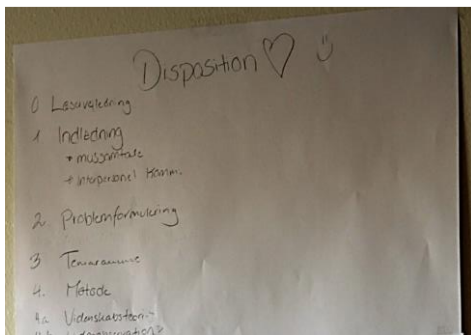 Disposition ♡ :)
0 Læsevejledning
1 Indledning
* mussamtale
* interpersonel komm.
2. Problemformulering
3 Temaramme
4. Metode
4a Videnskabsteori